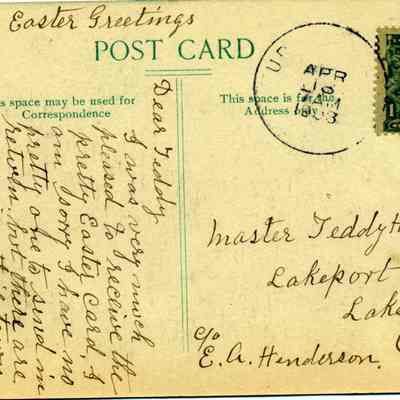 Easter Greetings
POST CARD
s space may be used for
Correspondence
This space is for the
Address
U
APR
16
AM
1908
Dear Teddy
I was very much
pleased to receive the
pretty Easter card, &
am sorry I have no
pretty one to send in
return, but there are
Master Teddy H
Lakeport
Lake
c/o
E. A. Henderson.